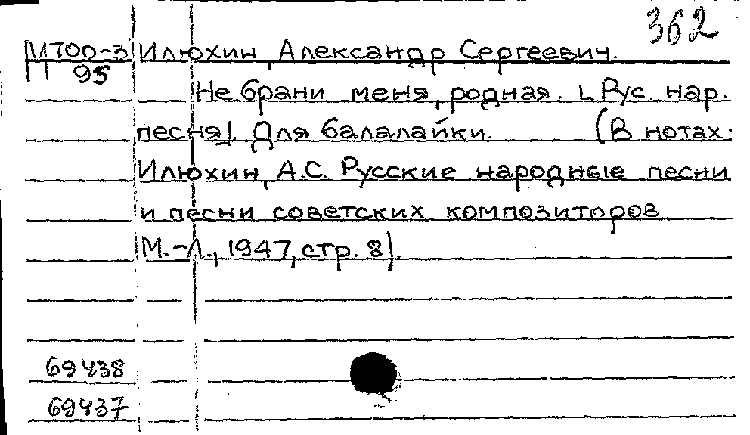 362
М700-3 Илюхин, Александр Сергеевич.
95
Не брани меня, родная. [Рус. нар.
песня]. Для балалайки. (В нотах:
Илюхин, А.С. Русские народные песни
и песни советских композиторов
М.-Л., 1947, стр. 8).
69438
69437